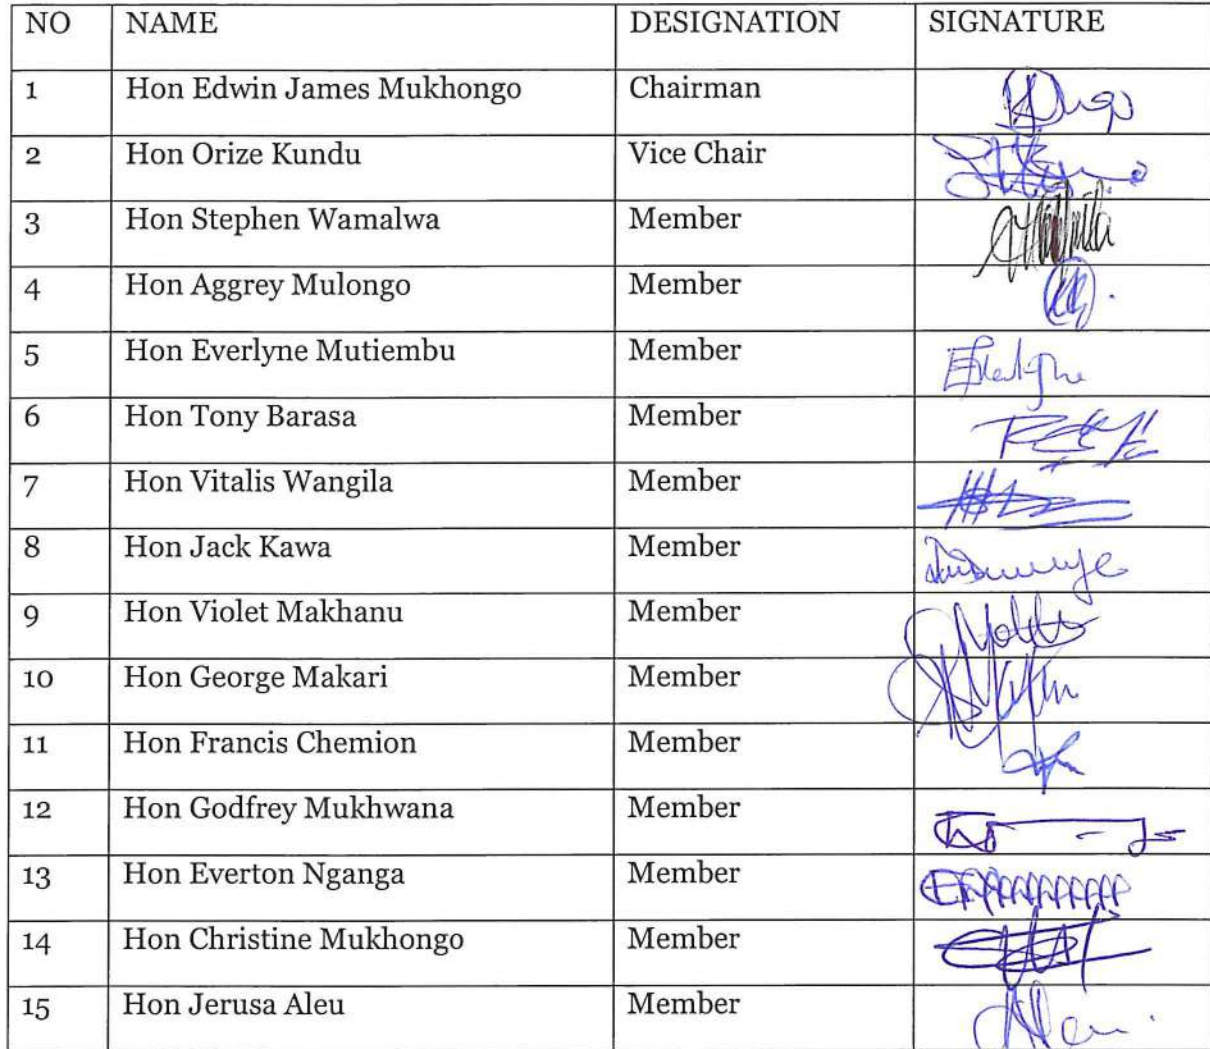 NO NAME DESIGNATION SIGNATURE
1 Hon Edwin James Mukhongo Chairman
2 Hon Orize Kundu Vice Chair
3 Hon Stephen Wamalwa Member
4 Hon Aggrey Mulongo Member
5 Hon Everlyne Mutiembu Member
6 Hon Tony Barasa Member
7 Hon Vitalis Wangila Member
8 Hon Jack Kawa Member
9 Hon Violet Makhanu Member
10 Hon George Makari Member
11 Hon Francis Chemion Member
12 Hon Godfrey Mukhwana Member
13 Hon Everton Nganga Member
14 Hon Christine Mukhongo Member
15 Hon Jerusa Aleu Member